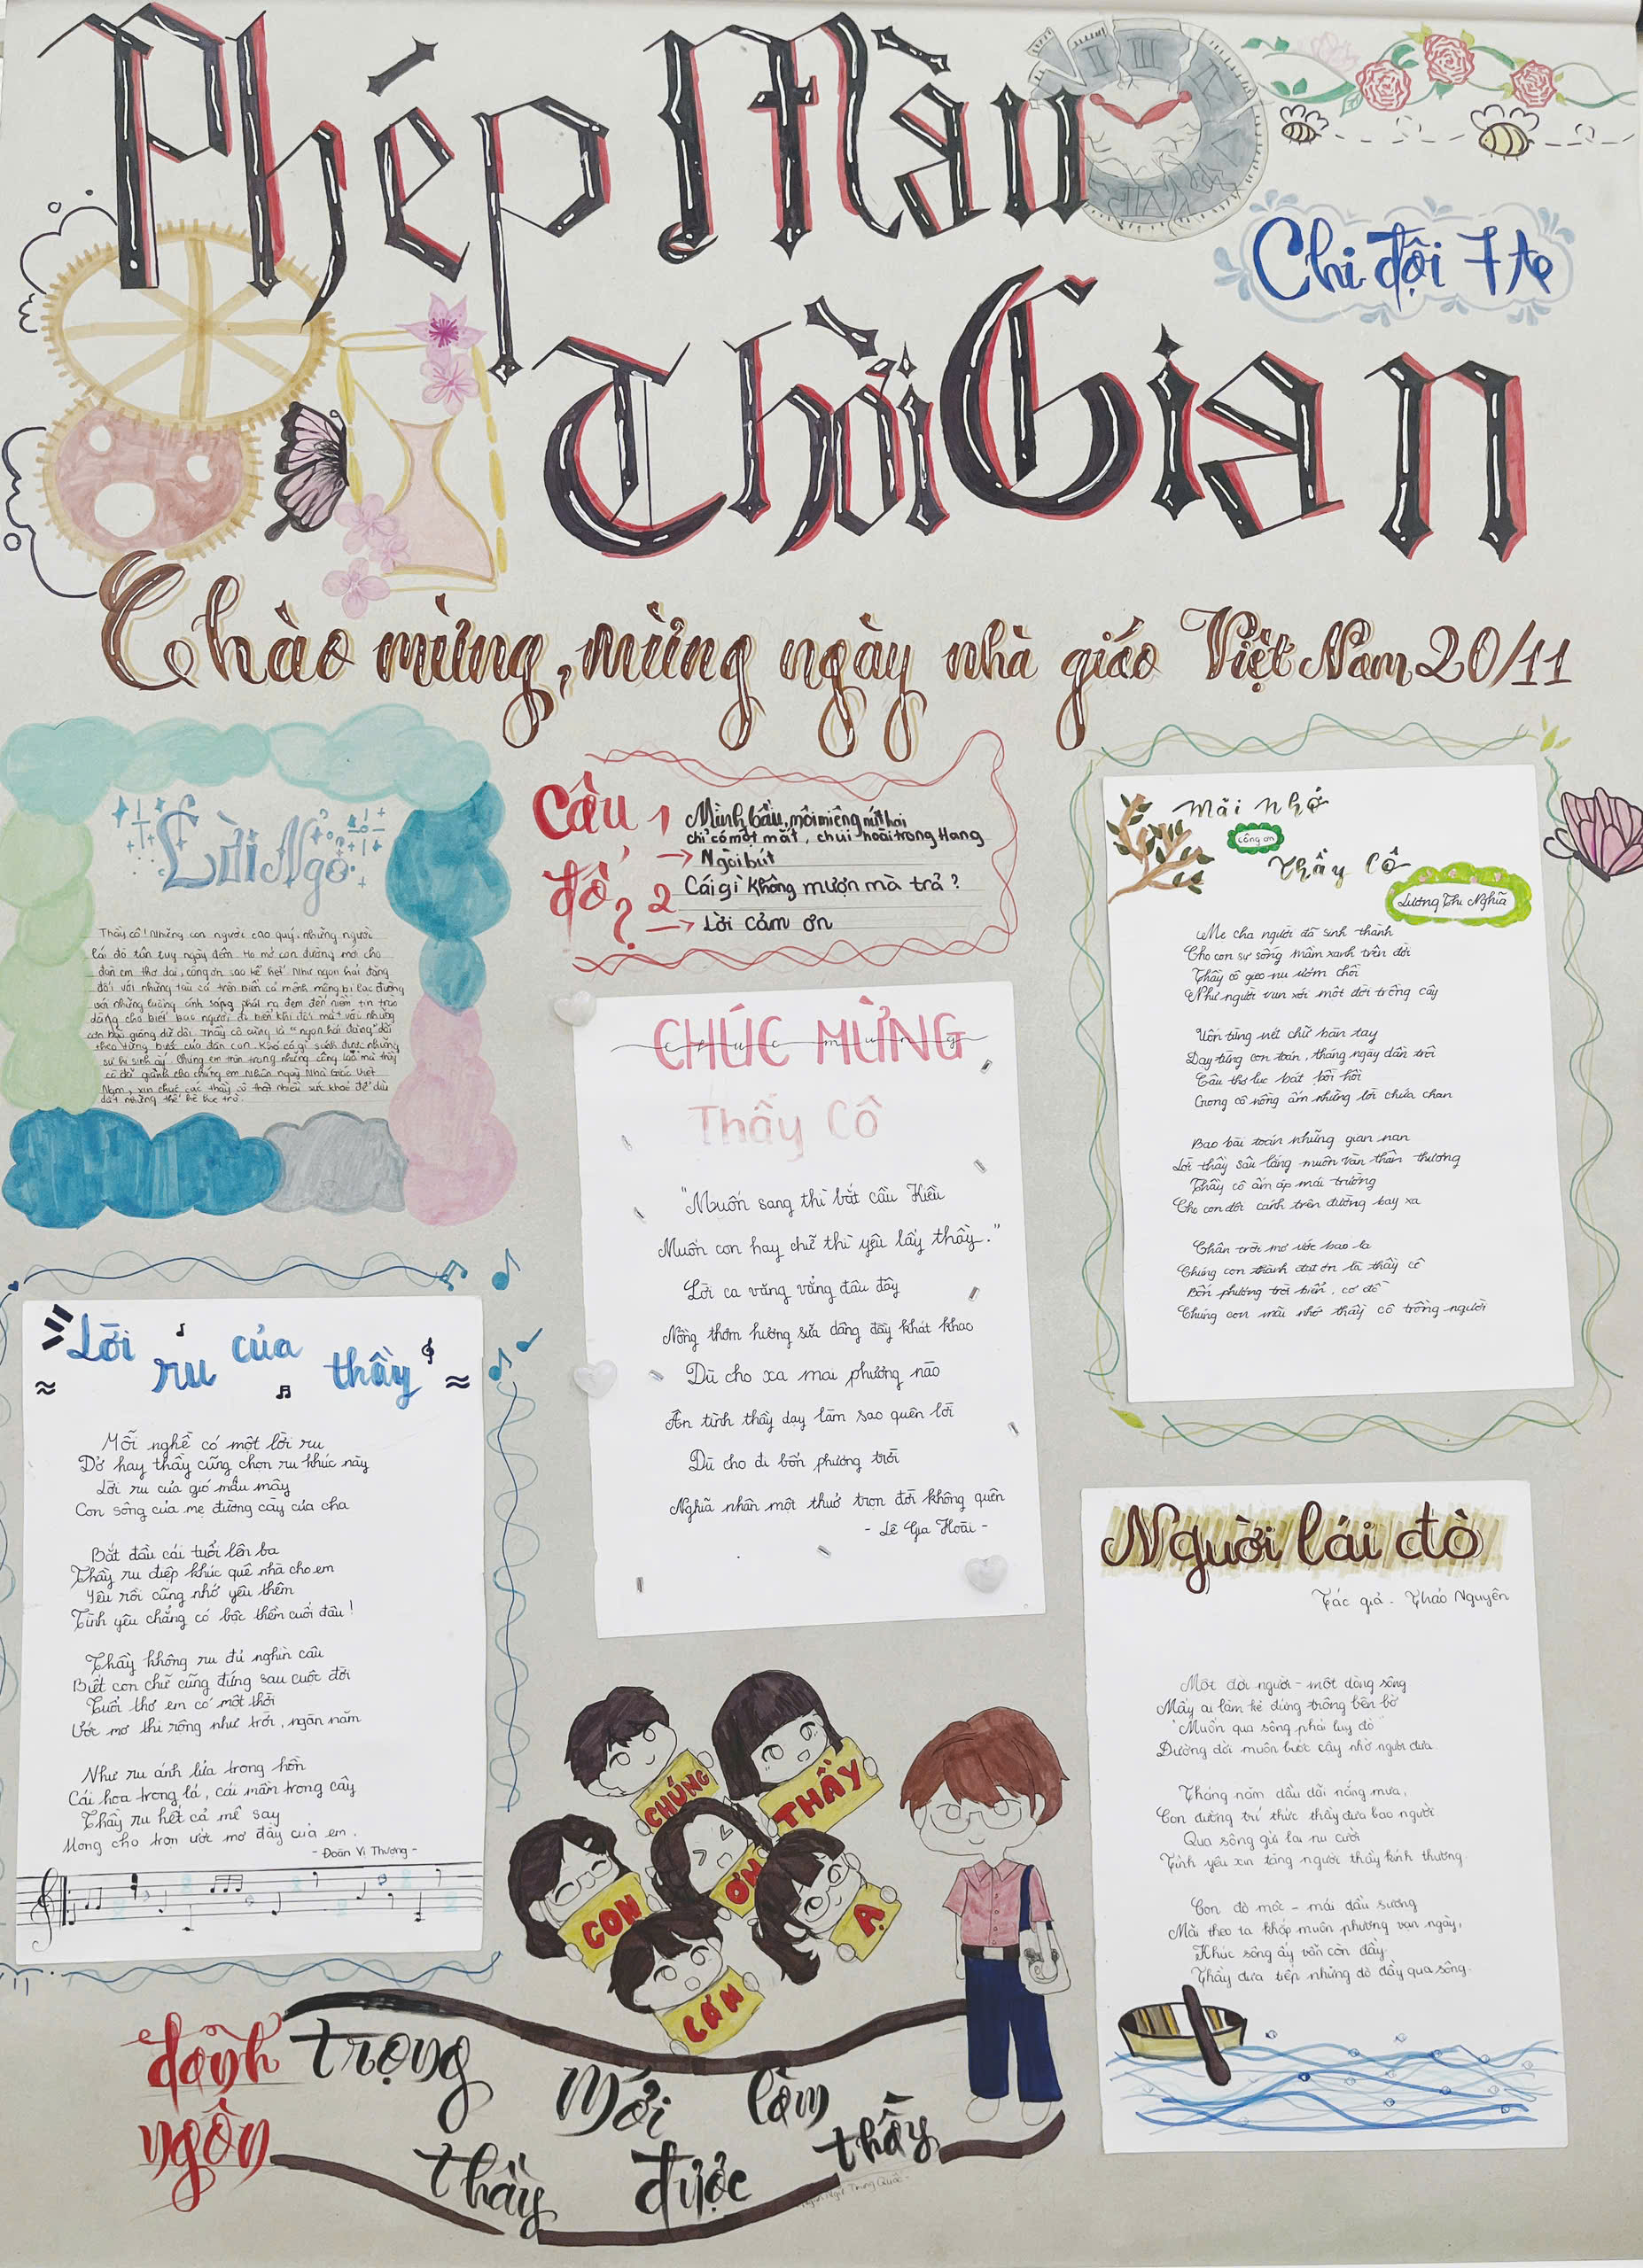 Phép Màu
Thời Gian
Chi đội 7A
Chào mừng, mừng ngày nhà giáo Việt Nam 20/11
Lời Ngỏ
Thầy cô! Những con người cao quý, những người
lái đò tận tụy ngày đêm. Họ mở con đường mới cho
đàn em thơ dại, công ơn sao kể hết. Như ngọn hải đăng
đối với những tàu cá trên biển cả mênh mông bị lạc đường
với những luồng ánh sáng phát ra đem đến niềm tin trao
dâng cho biết bao người đi biển khi đối mặt với những
cơn bão giông dữ dội. Thầy cô cũng là "ngọn hải đăng" dõi
theo từng bước của đàn con. Khó có gì sánh được những
sự hi sinh ấy. Chúng em trân trọng những công lao mà thầy
cô đã giành cho chúng em. Nhân ngày Nhà Giáo Việt
Nam, xin chúc các thầy cô thật nhiều sức khoẻ để dìu
dắt những thế hệ học trò.
Câu đố?
1 Mình bầu, môi miệng nứt hai
chỉ có một mắt, chúi hoài trong Hang
→ Ngòi bút
2 Cái gì không mượn mà trả?
→ Lời cảm ơn
Mãi nhớ
công ơn
thầy cô
Lương Thị Nghĩa
Mẹ cha người đã sinh thành
Cho con sự sống mầm xanh trên đời
Thầy cô gieo nụ ươm chồi
Như người vun xới một đời trồng cây
Uốn từng nét chữ bàn tay
Dạy từng con toán, tháng ngày dần trôi
Câu thơ lục bát bồi hồi
Trong cô nồng ấm những lời chứa chan
Bao bài toán những gian nan
Lời thầy sâu lắng muôn vàn thân thương
Thầy cô ấm áp mái trường
Cho con đôi cánh trên đường bay xa
Chân trời mơ ước bao la
Chúng con thành đạt ơn là thầy cô
Bốn phương trời biển, cơ đồ
Chúng con mãi nhớ thầy cô trồng người
CHÚC MỪNG
chuc mung
Thầy Cô
"Muốn sang thì bắt cầu Kiều
Muốn con hay chữ thì yêu lấy thầy."
Lời ca văng vẳng đâu đây
Nồng thơm hương sữa dâng đầy khát khao
Dù cho xa mai phương nào
Ân tình thầy dạy làm sao quên lời
Dù cho đi bốn phương trời
Nghĩa nhân một thuở trọn đời không quên
- Lê Gia Hoài -
Lời ru của thầy
Mỗi nghề có một lời ru
Dở hay thầy cũng chọn ru khúc này
Lời ru của gió mầu mây
Con sông của mẹ đường cày của cha
Bắt đầu cái tuổi lên ba
Thầy ru điệp khúc quê nhà cho em
Yêu rồi cũng nhớ yêu thêm
Tình yêu chẳng có bậc thềm cuối đâu!
Thầy không ru đủ nghìn câu
Biết con chữ cũng đứng sau cuộc đời
Tuổi thơ em có một thời
Ước mơ thì rộng như trời, ngàn năm
Như ru ánh lửa trong hồn
Cái hoa trong lá, cái mầm trong cây
Thầy ru hết cả mê say
Mong cho trọn ước mơ đầy của em.
- Đoàn Vị Thượng -
Người lái đò
Tác giả - Thảo Nguyên
Một đời người - một dòng sông
Mấy ai làm kẻ đứng trông bến bờ
"Muốn qua sông phải lụy đò"
Đường đời muôn bước cậy nhờ người đưa.
Tháng năm dầu dãi nắng mưa,
Con đường trí thức thầy đưa bao người
Qua sông gửi lại nụ cười
Tình yêu xin tặng người thầy kính thương.
Con đò mộc - mái đầu sương
Mãi theo ta khắp muôn phương vạn ngày,
Khúc sông ấy vẫn còn đầy.
Thầy đưa tiếp những đò đầy qua sông.
CHÚNG
CON
CÁM
ƠN
THẦY
Ạ
danh ngôn
trọng thầy mới được làm thầy
Ngạn Ngữ Trung Quốc